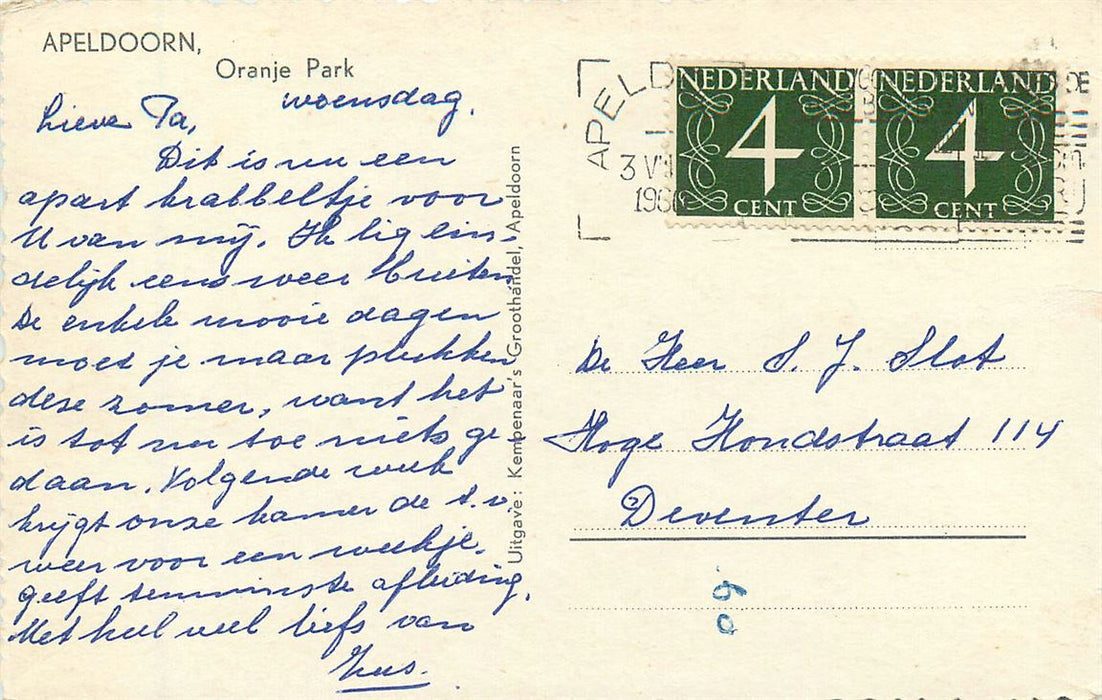 APELDOORN,
Oranje Park
woensdag.
Lieve Pa,
Dit is nu een
apart krabbeltje voor
U van mij. Ik lig ein-
delijk eens weer buiten.
De enkele mooie dagen
moet je maar plukken
deze zomer, want het
is tot nu toe niets ge
daan. Volgende week
krijgt onze kamer de t.v.
weer voor een weekje.
geeft tenminste afleiding.
Met heel veel liefs van
Uitgave: Kempenaar's Groothandel, Apeldoorn
APELD
3 VII
196
NEDERLAND
4
CENT
NEDERLAND
4
CENT
De Heer S. J. Slot
Hoge Hondstraat 114
Deventer
60